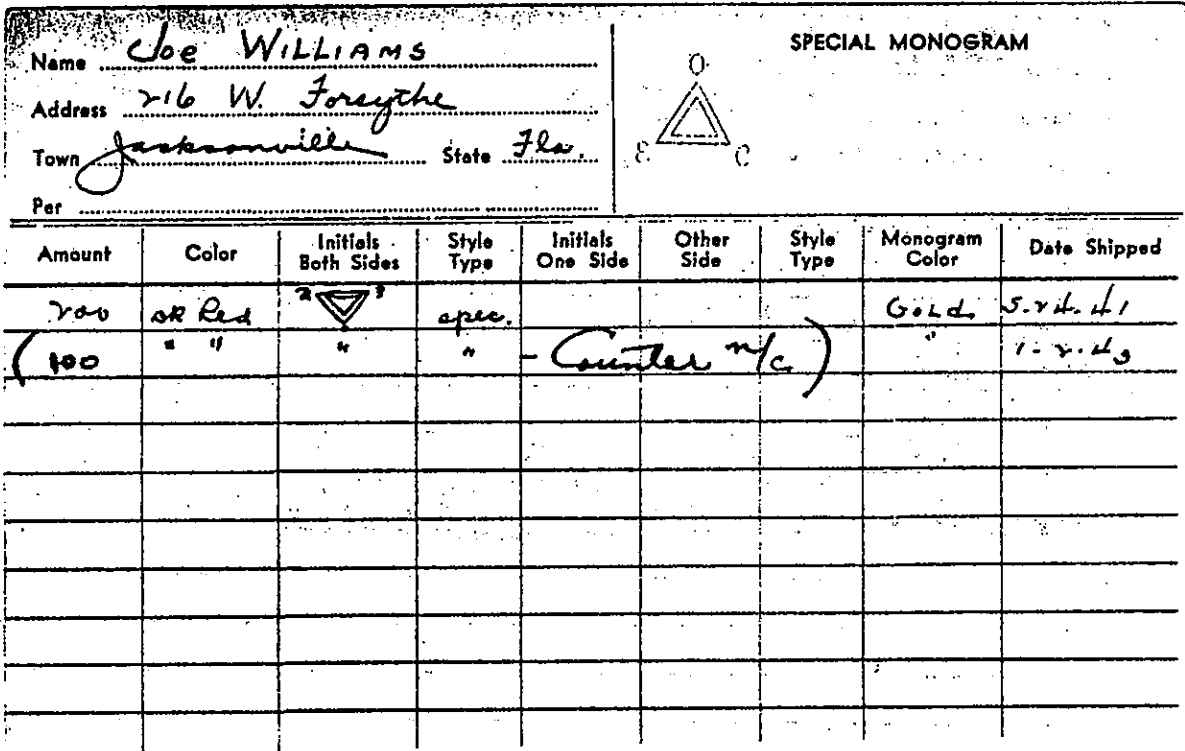 Name Joe WILLIAMS
Address 216 W. Forsythe
Town Jacksonville State Fla.
Per
SPECIAL MONOGRAM
O
E C
Amount Color Initials Both Sides Style Type Initials One Side Other Side Style Type Monogram Color Date Shipped
200 DK Red spec. Gold 5.24.41
(100 " " " " - Counter n/c) " 1-2-43